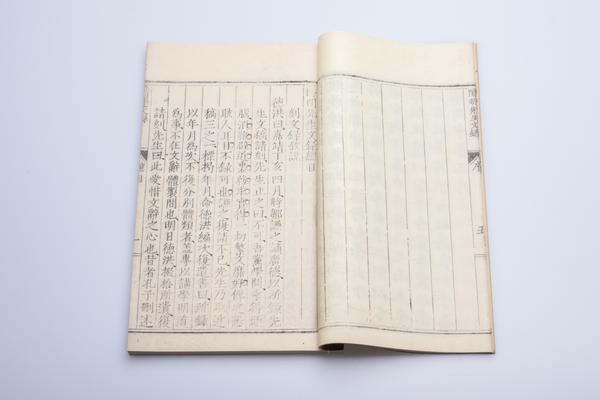 陽明先生文錄
五
刻文錄敘說
德洪曰嘉靖丁亥四月時鄒謙之謫廣德以所錄先
生文稿請刻先生止之曰不可吾黨學問幸得頭
腦須鞭辟近裏務求實得一切繁文靡好傳之恐
眩人耳目不錄可也謙之復請不已先生乃取近
稿三之一標揭年月命德洪編次復遺書曰所錄
以年月為次不復分別體類者蓋專以講學明道
為事不在文辭體製間也明日德洪掇拾所遺復
請刻先生曰此愛惜文辭之心也昔者孔子刪述